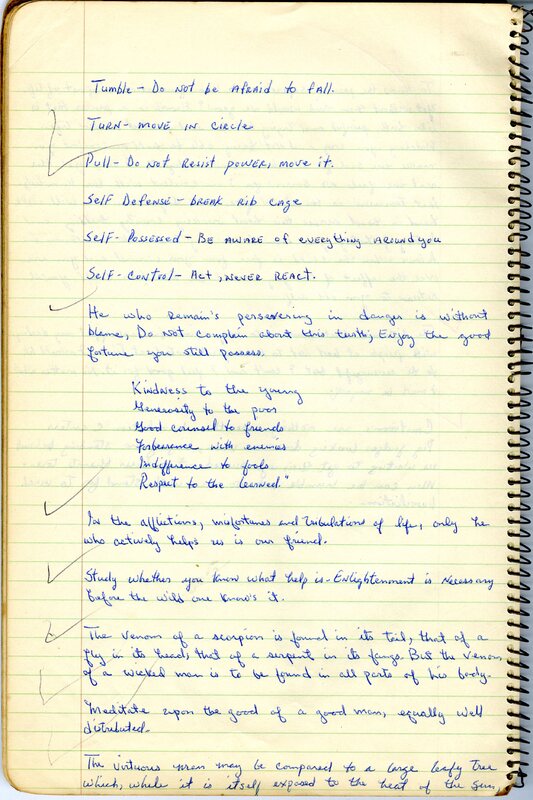 Tumble - Do not be afraid to fall.
Turn - move in circle
Pull - Do not resist power, move it.
Self Defense - break rib cage
Self-Possessed - Be aware of everything around you
Self-Control - Act, never react.
He who remain's persevering in danger is without
blame, Do not complain about this truth; Enjoy the good
fortune you still possess.
Kindness to the young
Generosity to the poor
Good counsel to friends
Forbearance with enemies
Indifference to fools
Respect to the learned."
In the afflictions, misfortunes and tribulations of life, only he
who actively helps us is our friend.
Study whether you know what help is - Enlightenment is necessary
before the wild one know's it.
The venom of a scorpion is found in its tail, that of a
fly in its head, that of a serpent in its fangs. But the venom
of a wicked man is to be found in all parts of his body.
Meditate upon the good of a good man, equally well
distributed.
The virtuous man may be compared to a large leafy tree
which, while it is itself exposed to the heat of the sun,